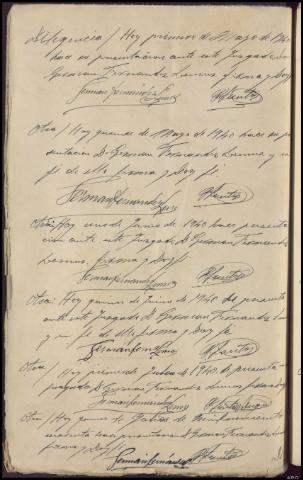 Diligencia / Hoy primero de Mayo de 1940
hace su presentacion ante este Juzgado D.
German Fernandez Lemus firma y Doy fe
German Fernandez Lemus
Otra / Hoy quince de Mayo de 1940 hace su pre
sentacion D. German Fernandez Lemus y en
fe de ello firma y Doy fe.
German Fernandez Lemus
Otra: Hoy uno de Junio de 1940 hace presenta
cion ante este Juzgado D. German Fernandez
Lemus, firma y Doy fe
German Fernandez Lemus
Otra: Hoy quince de Junio de 1940 se presenta
ante este Juzgado D. German Fernandez Lemus
y en fe de ello firma y Doy fe
German Fernandez Lemus
Otra / Hoy primero de Julio de 1940 se presenta
Juzgado D. German Fernandez Lemus firma y Doy fe
German Fernandez Lemus
Otra / Hoy quince de Julio de mil novecientos
cuarenta hace presentacion D. German Fernandez Lemus
firma y Doy fe
German Fernandez